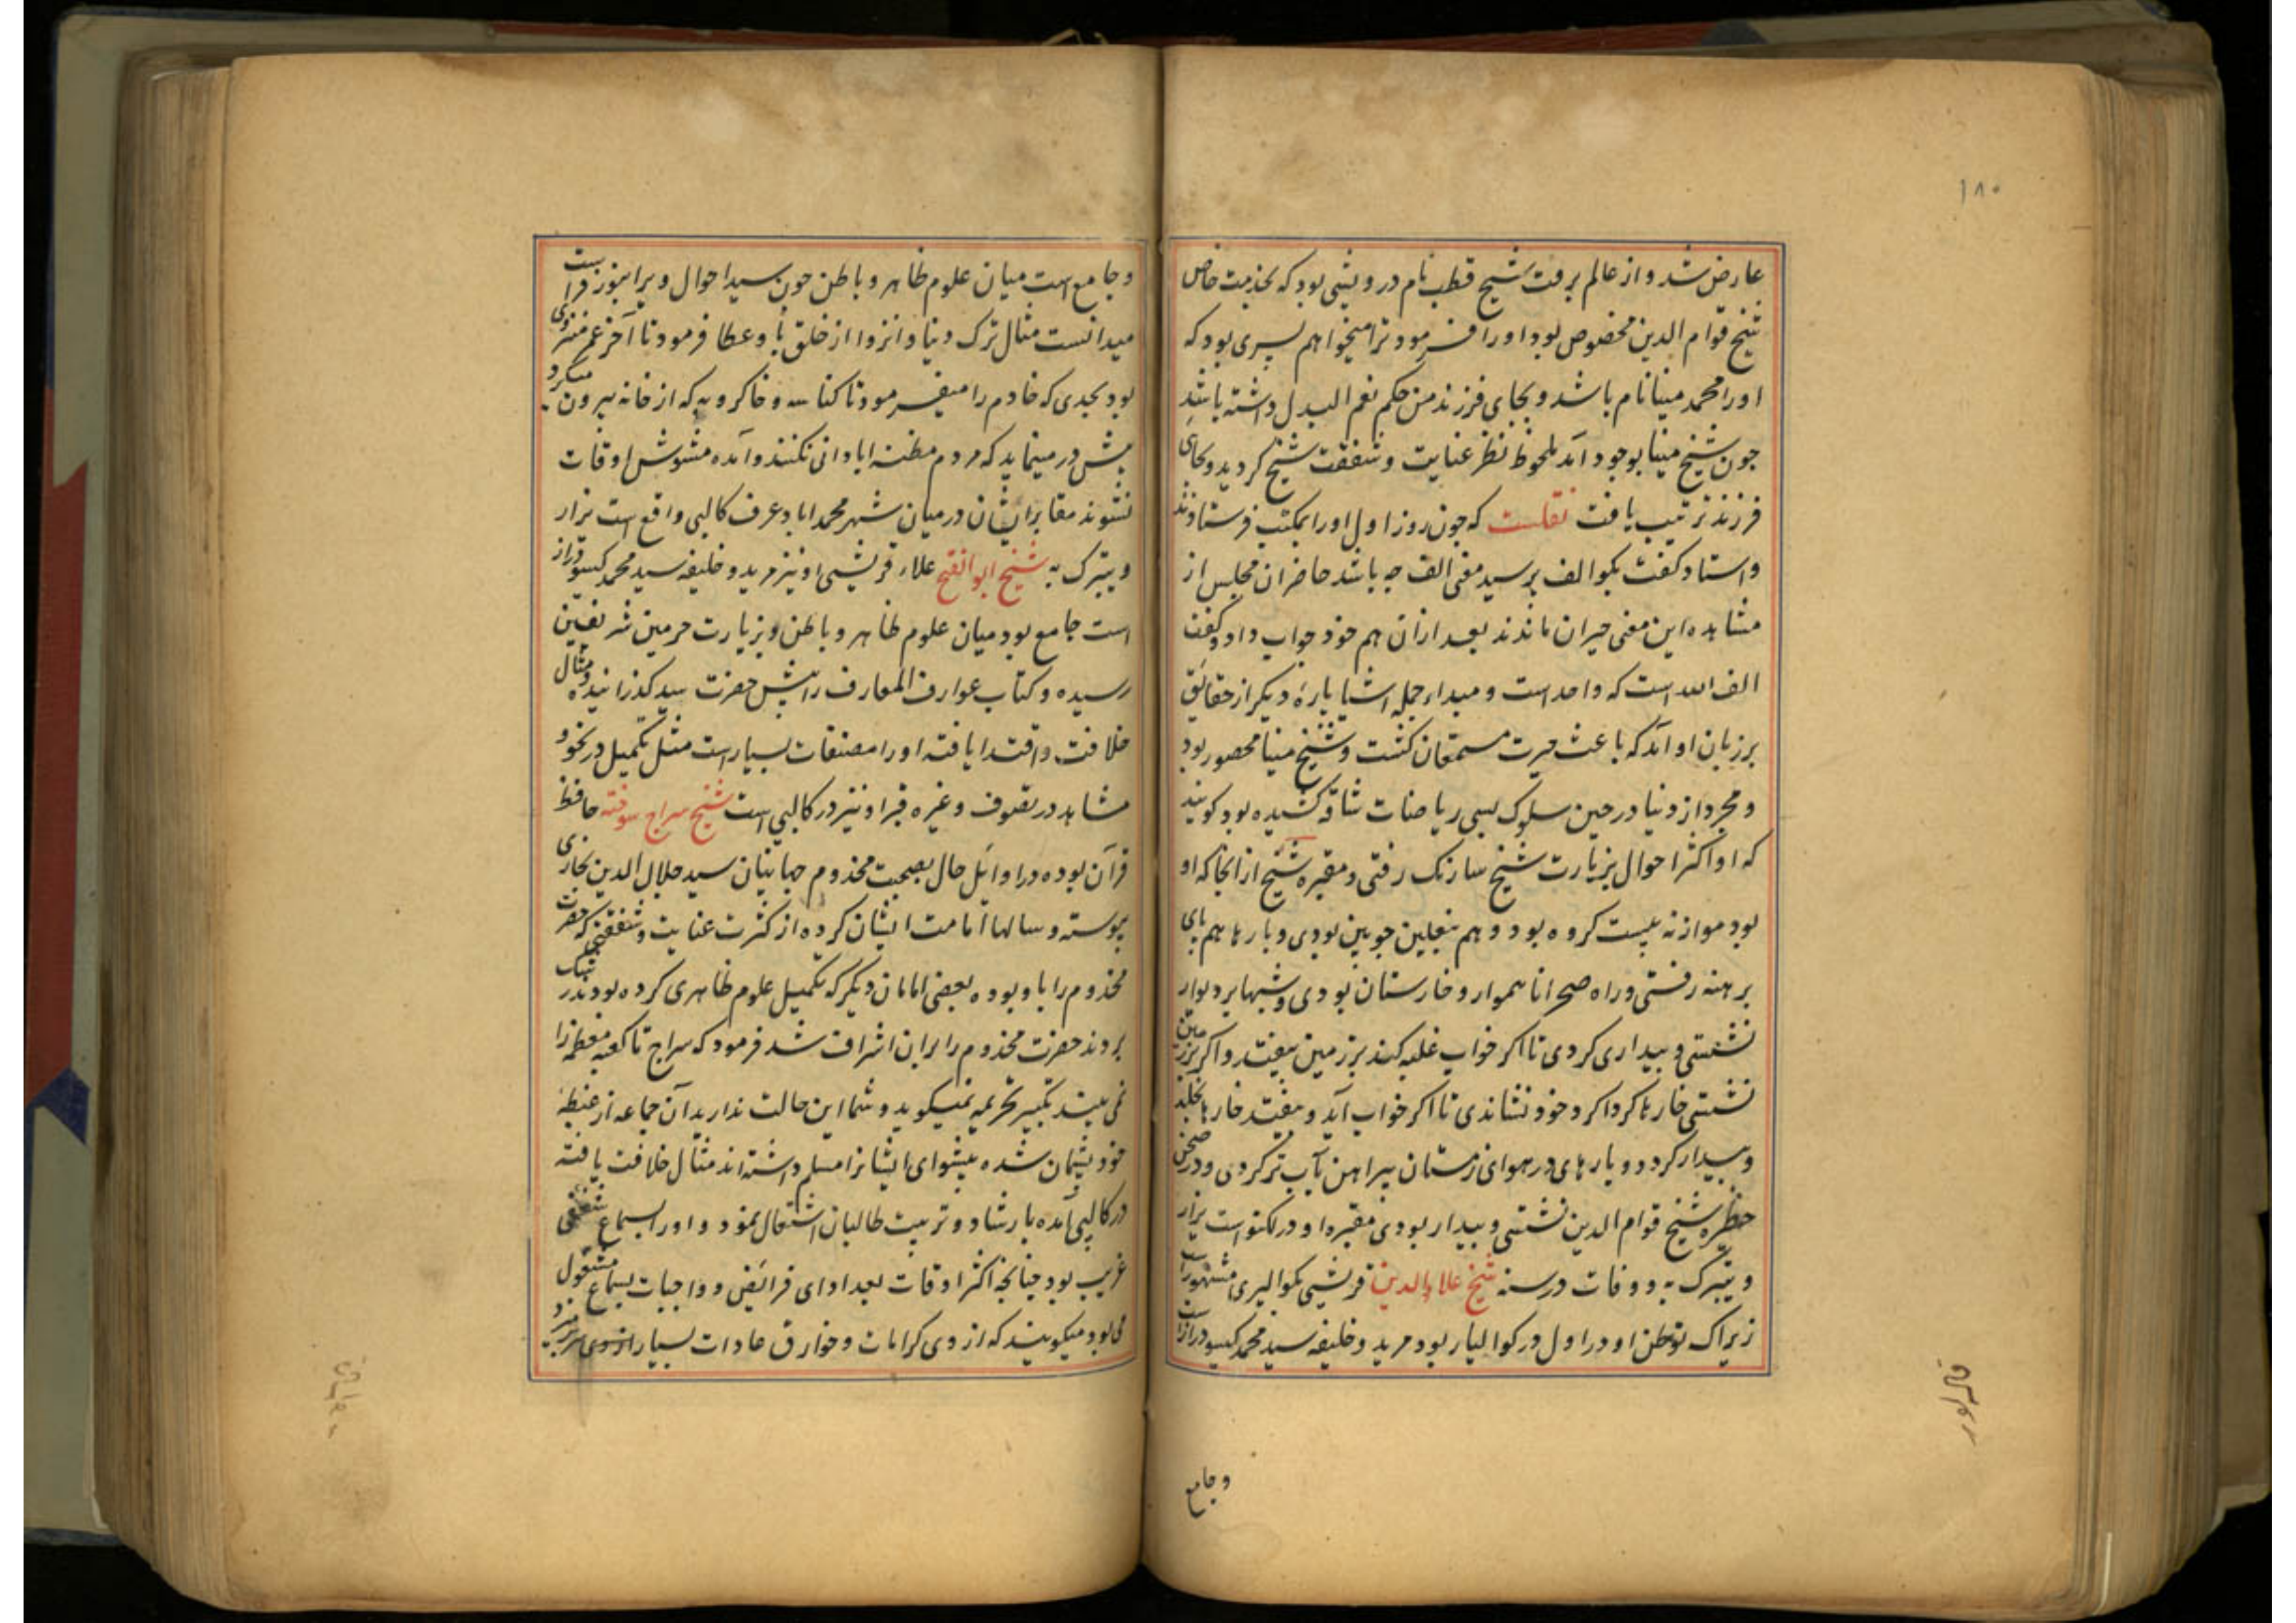 ۱۸۰
عارض شد و از عالم برفت شیخ قطب نام درویشی بود که بخدمت خاص
شیخ قوام الدین مخصوص بود او را فرمود ترا میخواهم پسری بود که
او را محمد مینا نام باشد و بجای فرزند من حکم نعم البدل داشته باشد
چون شیخ مینا بوجود آمد ملحوظ نظر عنایت و شفقت شیخ گردید و بجای
فرزند ترتیب یافت نقلست که چون روز اول او را بمکتب فرستادند
و استاد گفت بگو الف پرسید معنی الف چه باشد حاضران مجلس از
مشاهده این معنی حیران ماندند بعد ازان هم خود جواب داد و گفت
الف الله است که واحد است و مبداء جمله اشیا پارهٔ دیگر از حقائق
بر زبان او آمد که باعث حیرت مستمعان گشت و شیخ مینا محصور بود
و مجرد از دنیا در حین سلوک بسی ریاضات شاقه کشیده بود گویند
که او اکثر احوال بزیارت شیخ سارنگ رفتی و مقبره شیخ از انجا که او
بود موازنه بیست کروه بود و هم نعلین چوبین بودی و بارها هم پای
برهنه رفتی و راه صحرا ناهموار و خارستان بودی و شبها بر دیوار
نشستی و بیداری کردی تا اگر خواب غلبه کند بر زمین بیفتد و اگر بر زمین
نشستی خارها گرداگرد خود نشاندی تا اگر خواب آید و بیفتد خارها بخلد
و بیدار گردد و بارهای در هوای زمستان پیراهن بآب تر کردی و در صحن
حظیره شیخ قوام الدین نشستی و بیدار بودی مقبره او در لکنو است یزار
و یتبرک به و وفات در سنه شیخ علاء الدین قریشی گوالیری مشهور است
زیراک توطن او در اول در گوالیار بود مرید و خلیفه سید محمد گیسو دراز است
و جامع
و جامع است میان علوم ظاهر و باطن چون سید احوال ویرا بنور فراست
میدانست مثال ترک دنیا و انزوا از خلق باو عطا فرمود تا آخر عمر منزوی
بود بحدی که خادم را میفرمود تا کناسه و خاکروبه که از خانه بیرون میکرد
پیش در مینماید که مردم مظنه ابادانی نکنند و آمده مشوش اوقات
نشوند مقابر ایشان در میان شهر محمد اباد عرف کالپی واقع است یزار
و یتبرک به شیخ ابو الفتح علاء قریشی او نیز مرید و خلیفه سید محمد گیسو دراز
است جامع بود میان علوم ظاهر و باطن و بزیارت حرمین شریفین
رسیده و کتاب عوارف المعارف را پیش حضرت سید گذرانیده و مثال
خلافت و اقتدا یافته او را مصنفات بسیار است مثل تکمیل در نحو و
مشاهد در تصوف و غیره قبر او نیز در کالپی است شیخ سراج سوخته حافظ
قرآن بوده در اوائل حال بصحبت مخدوم جهانیان سید جلال الدین بخاری
پیوسته و سالها امامت ایشان کرده از کثرت عنایت و شفقتی که حضرت
مخدوم را باو بوده بعضی امامان دیگر که تکمیل علوم ظاهری کرده بودند رشک
بردند حضرت مخدوم را بران اشراف شد فرمود که سراج تا کعبه معظمه را
نمی بیند تکبیر تحریمه نمیگوید و شما این حالت ندارید آن جماعه از غبطهٔ
خود پشیمان شده پیشوای ایشانرا مسلم داشته اند مثال خلافت یافته
در کالپی آمده بارشاد و تربیت طالبان اشتغال نمود و او را بسماع شغفی
غریب بود چنانچه اکثر اوقات بعد ادای فرائض و واجبات بسماع مشغول
می بود میگویند که از وی کرامات و خوارق عادات بسیار